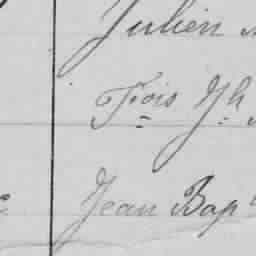 Julien
Fois Jh
Jean Bapt